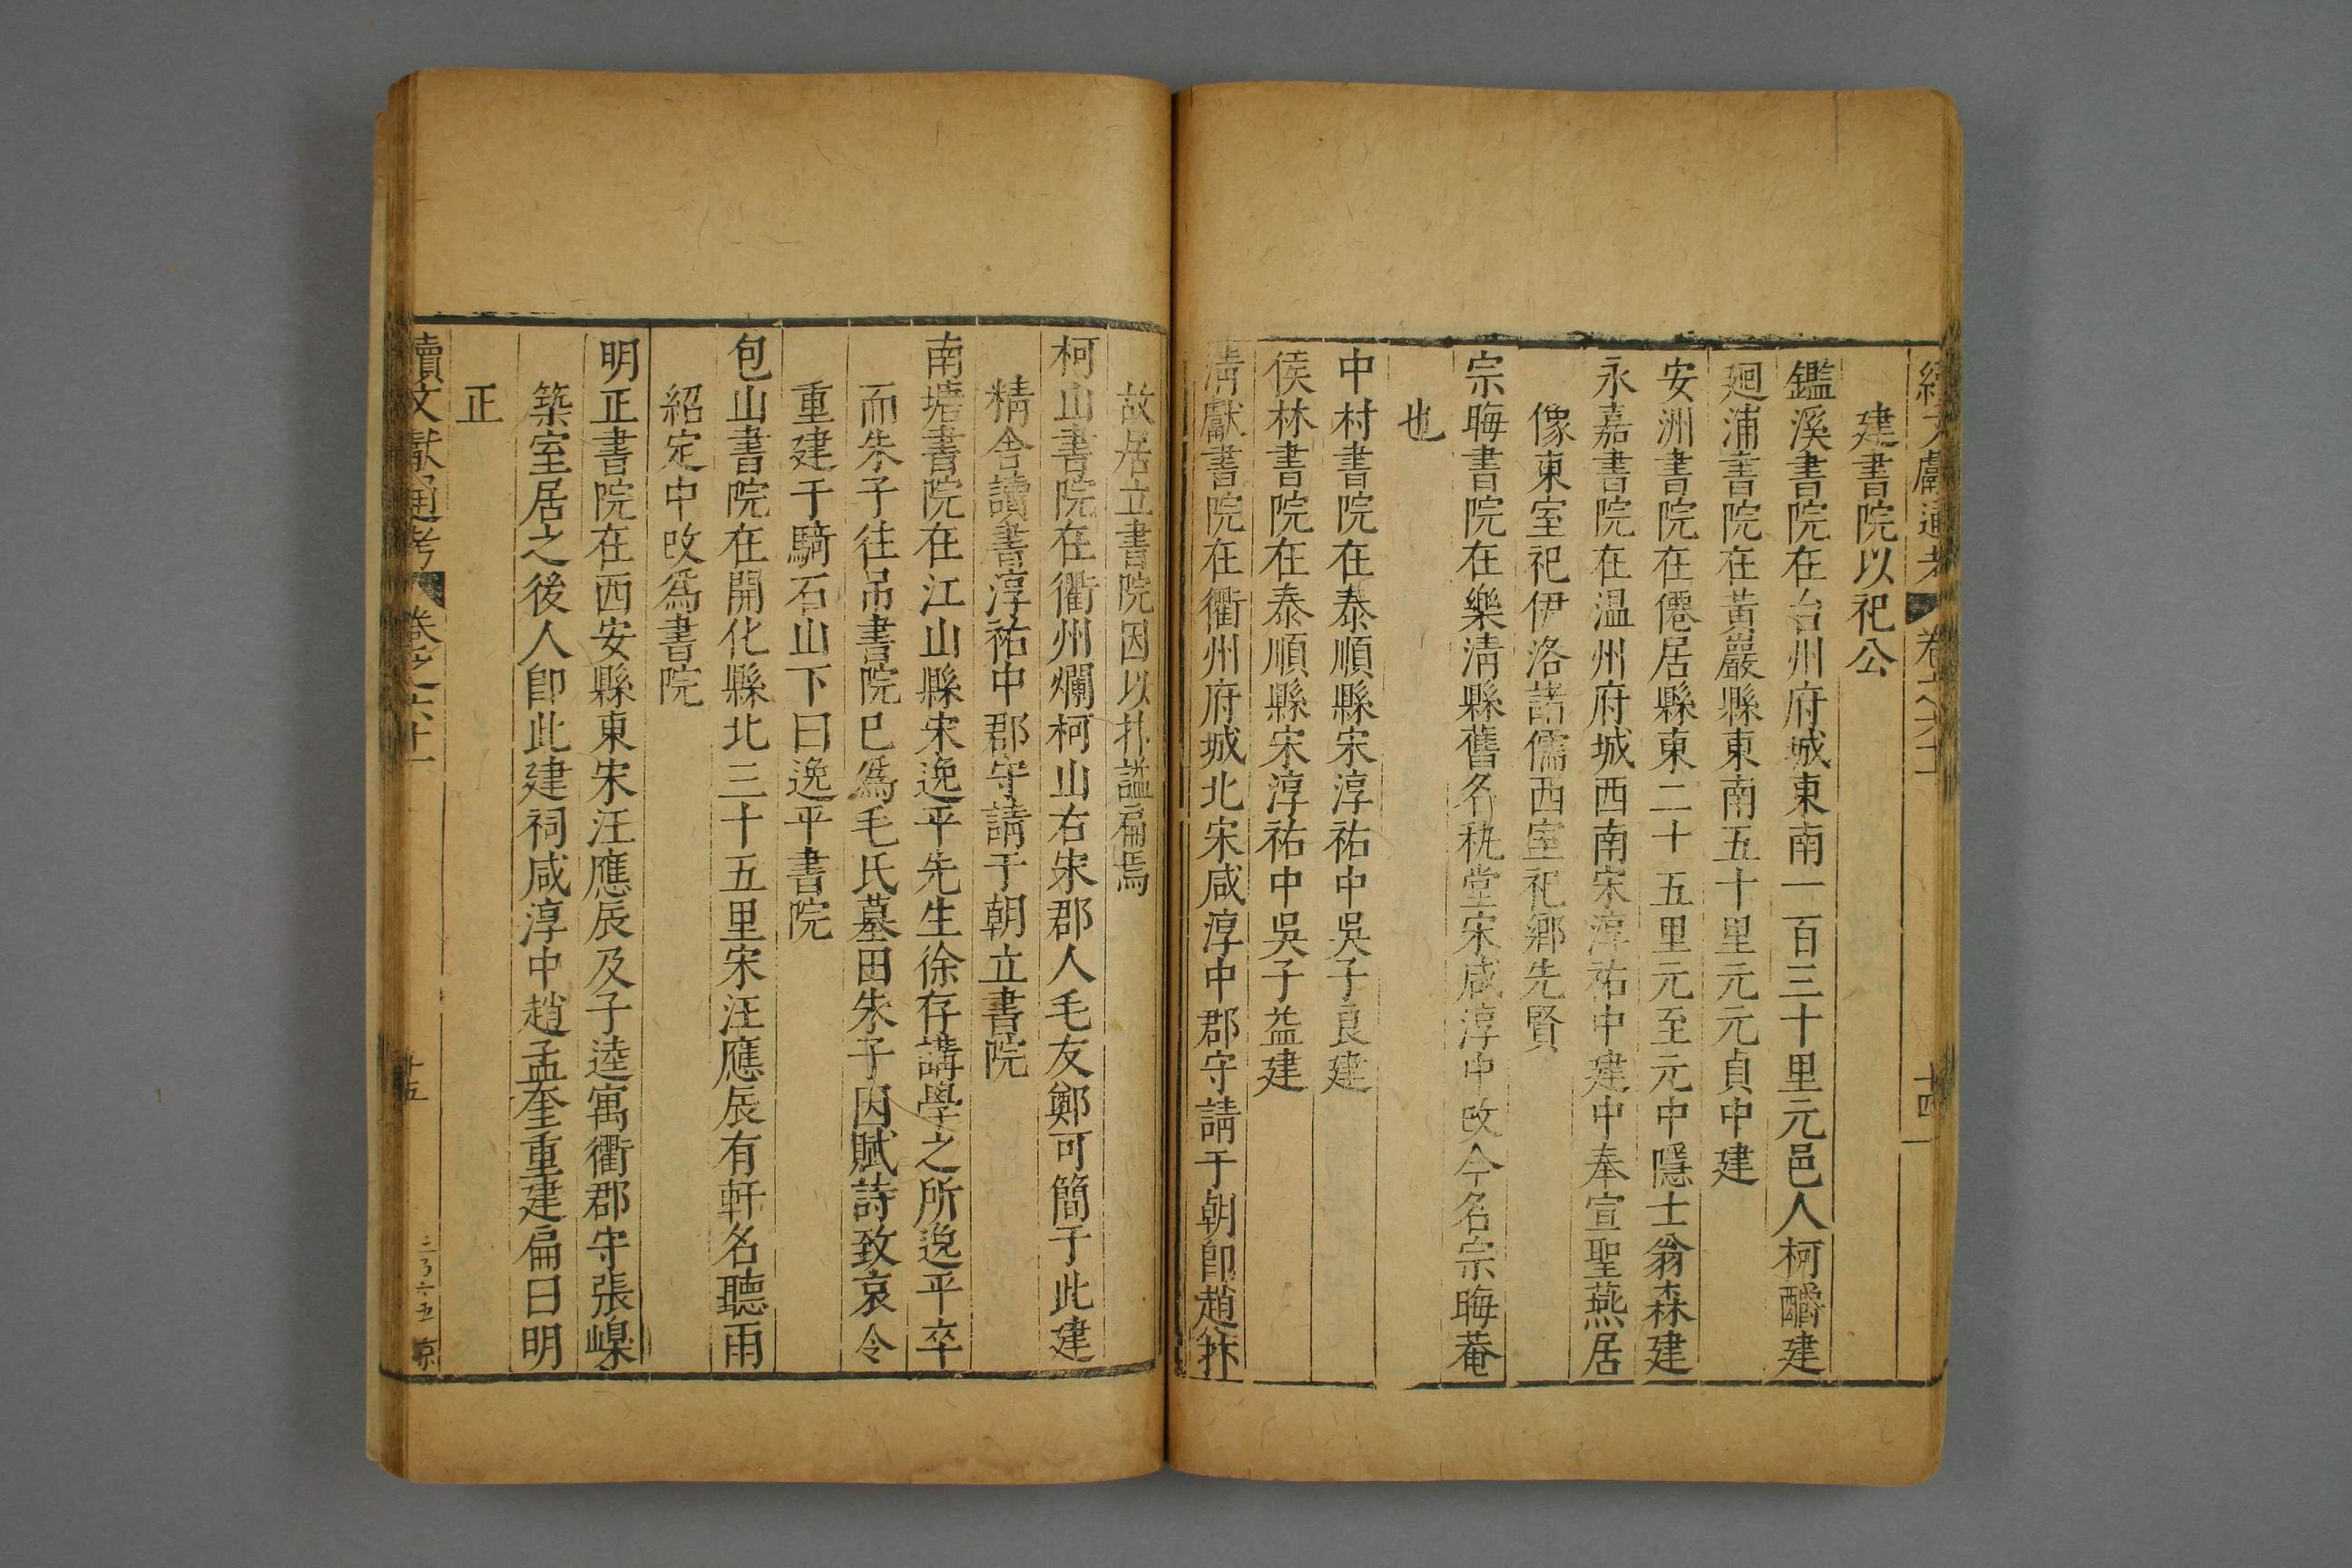 續文獻通考 卷之六十一 十四
建書院以祀公
鑑溪書院在台州府城東南一百三十里元邑人柯酹建
廻浦書院在黃巖縣東南五十里元元貞中建
安洲書院在僊居縣東二十五里元至元中隱士翁森建
永嘉書院在温州府城西南宋淳祐中建中奉宣聖燕居
像東室祀伊洛諸儒西室祀鄉先賢
宗晦書院在樂清縣舊名秇堂宋咸淳中改今名宗晦菴
也
中村書院在泰順縣宋淳祐中吳子良建
侯林書院在泰順縣宋淳祐中吳子益建
清獻書院在衢州府城北宋咸淳中郡守請于朝卽趙抃
故居立書院因以抃謚扁焉
柯山書院在衢州爛柯山右宋郡人毛友鄭可簡于此建
精舍讀書淳祐中郡守請于朝立書院
南塘書院在江山縣宋逸平先生徐存講學之所逸平卒
而朱子往吊書院已爲毛氏墓田朱子因賦詩致哀令
重建于騎石山下曰逸平書院
包山書院在開化縣北三十五里宋汪應辰有軒名聽雨
紹定中改爲書院
明正書院在西安縣東宋汪應辰及子逵寓衢郡守張嵲
築室居之後人卽此建祠咸淳中趙孟奎重建扁曰明
正
續文獻通考 卷之六十一 十五 三百六五 京